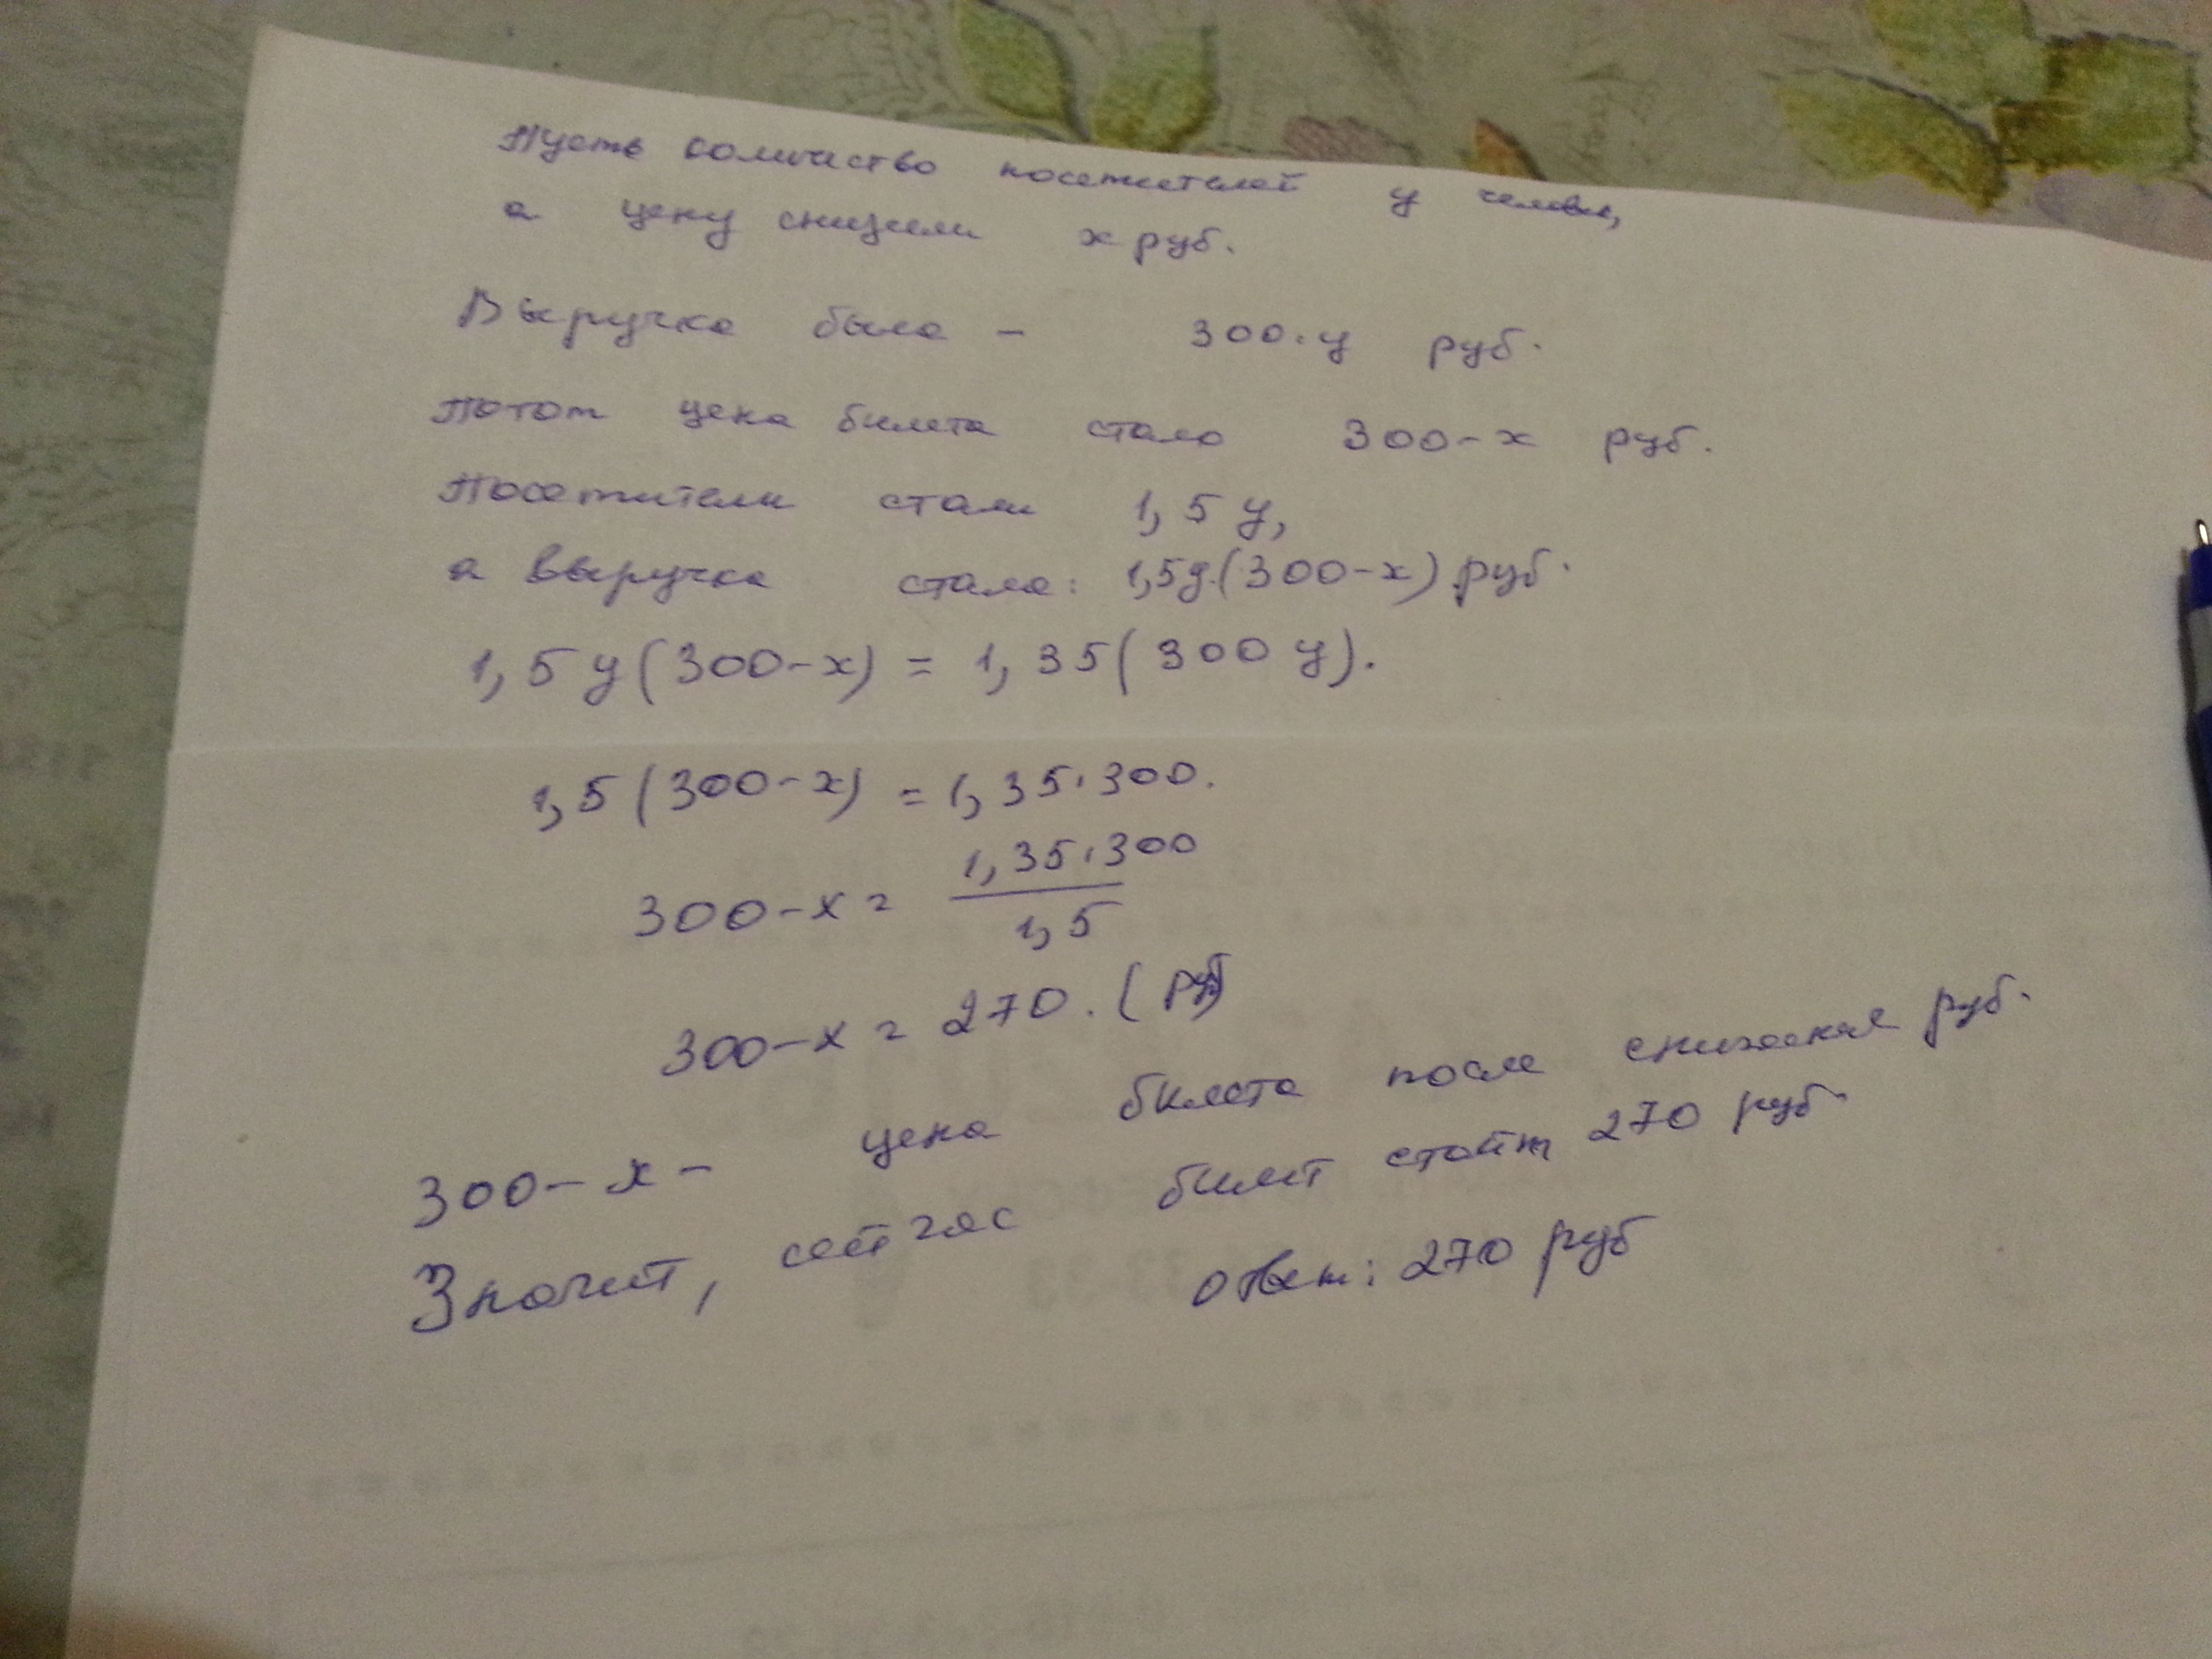 Пусть количество посетителей y человек,
а цену снизили x руб.
Выручка была - 300·y руб.
Потом цена билета стала 300-x руб.
Посетители стали 1,5 y,
а выручка стала: 1,5y·(300-x) руб.
1,5 y (300-x) = 1,35 (300 y).
1,5 (300-x) = 1,35·300.
300-x = 1,35·300 / 1,5
300-x = 270. (руб)
300-x - цена билета после снижения руб.
Значит, сейчас билет стоит 270 руб
ответ: 270 руб